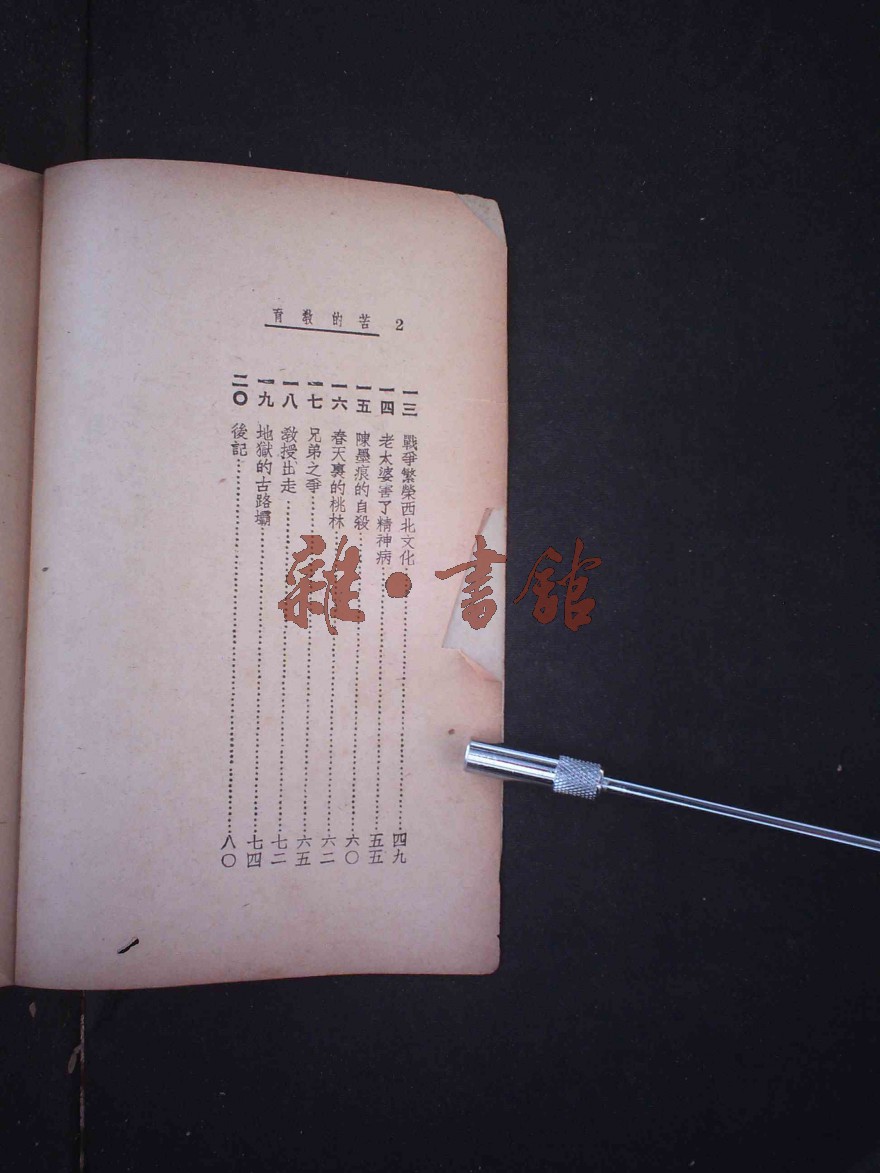 2 苦的教育
一三 戰爭繁榮西北文化……四九
一四 老太婆害了精神病……五五
一五 陳墨痕的自殺……六〇
一六 春天裏的桃林……六二
一七 兄弟之爭……六五
一八 教授出走……七二
一九 地獄的古路壩……七四
二〇 後記……八〇
雜·書館